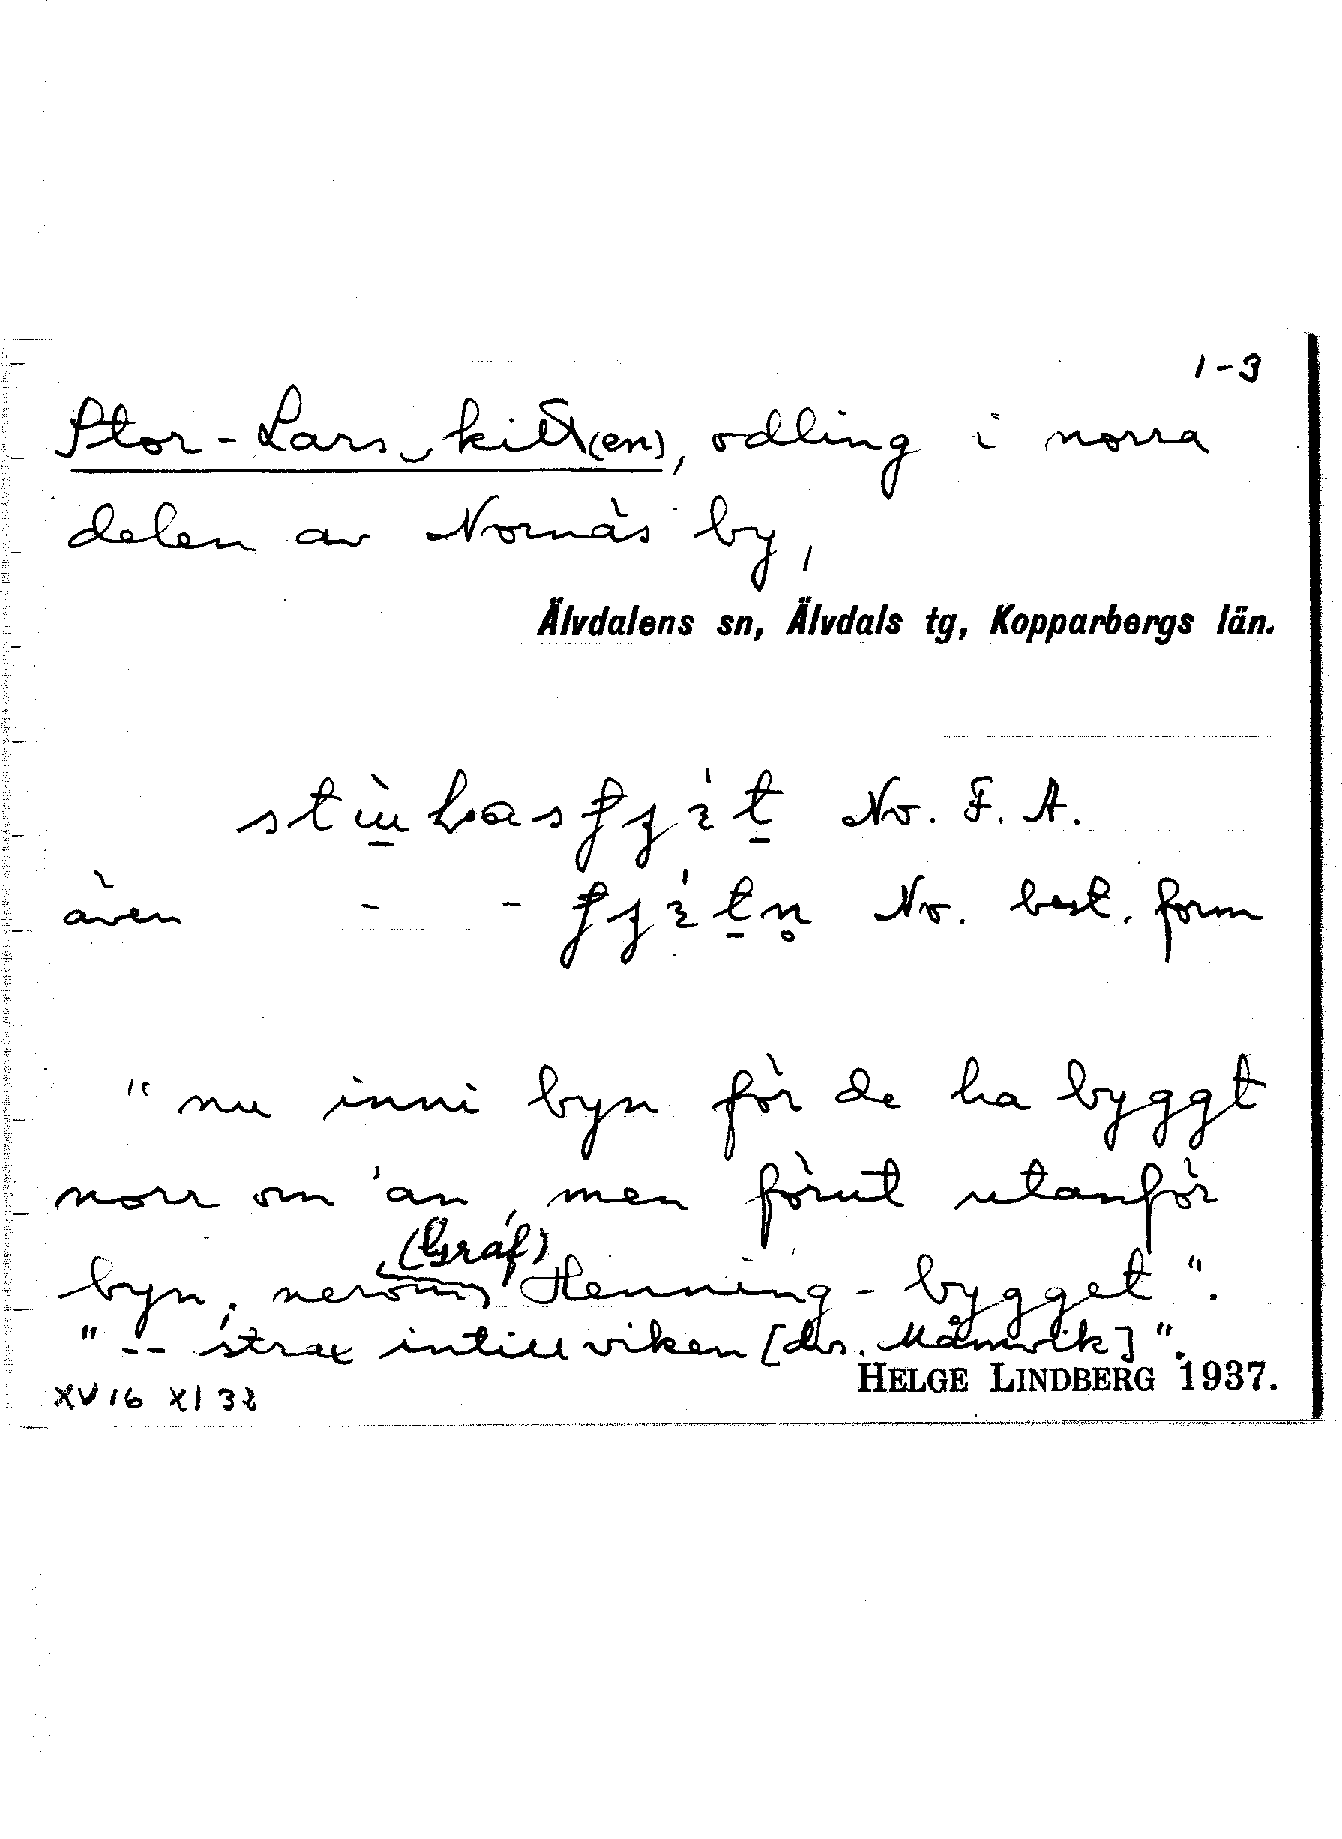 1-3
Stor-Lars kitt(en), odling i norra
delen av Nornäs by,
Älvdalens sn, Älvdals tg, Kopparbergs län.
No. F. A.
även - - No. best. form
"nu inni byn för de ha byggt
norr om 'an, men förut utanför
(Gräf)
byn, nerom Henning-bygget".
"-- strax intill viken [dvs. Månvik]".
HELGE LINDBERG 1937.
XV 16 XI 32